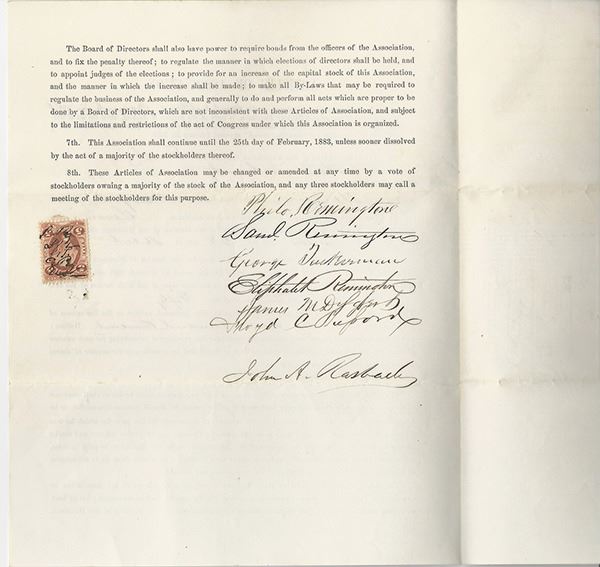 The Board of Directors shall also have power to require bonds from the officers of the Association,
and to fix the penalty thereof ; to regulate the manner in which elections of directors shall be held, and
to appoint judges of the elections ; to provide for an increase of the capital stock of this Association,
and the manner in which the increase shall be made ; to make all By-Laws that may be required to
regulate the business of the Association, and generally to do and perform all acts which are proper to be
done by a Board of Directors, which are not inconsistent with these Articles of Association, and subject
to the limitations and restrictions of the act of Congress under which this Association is organized.
7th. This Association shall continue until the 25th day of February, 1883, unless sooner dissolved
by the act of a majority of the stockholders thereof.
8th. These Articles of Association may be changed or amended at any time by a vote of
stockholders owning a majority of the stock of the Association, and any three stockholders may call a
meeting of the stockholders for this purpose.
Philo Remington
Saml. Remington
George Tuckerman
Eliphalet Remington
James M
Floyd C
John A. Rasbach